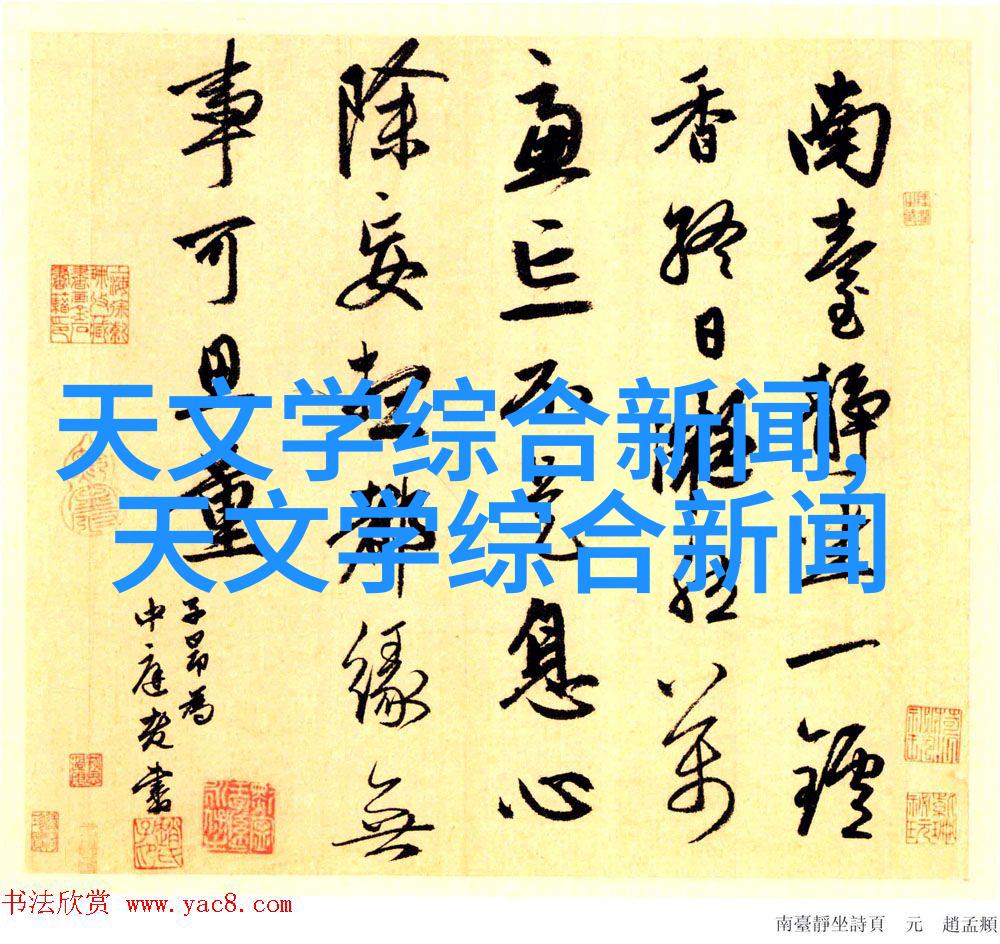 南臺靜坐一鑪
香終日凝然萬
慮忘不是息心
除妄想都緣無
事可思量
子昂為
中庭老書
天文学综合新闻,
天文学综合新闻
书法欣赏 www.yac8.com
南臺靜坐詩頁 元 趙孟頫